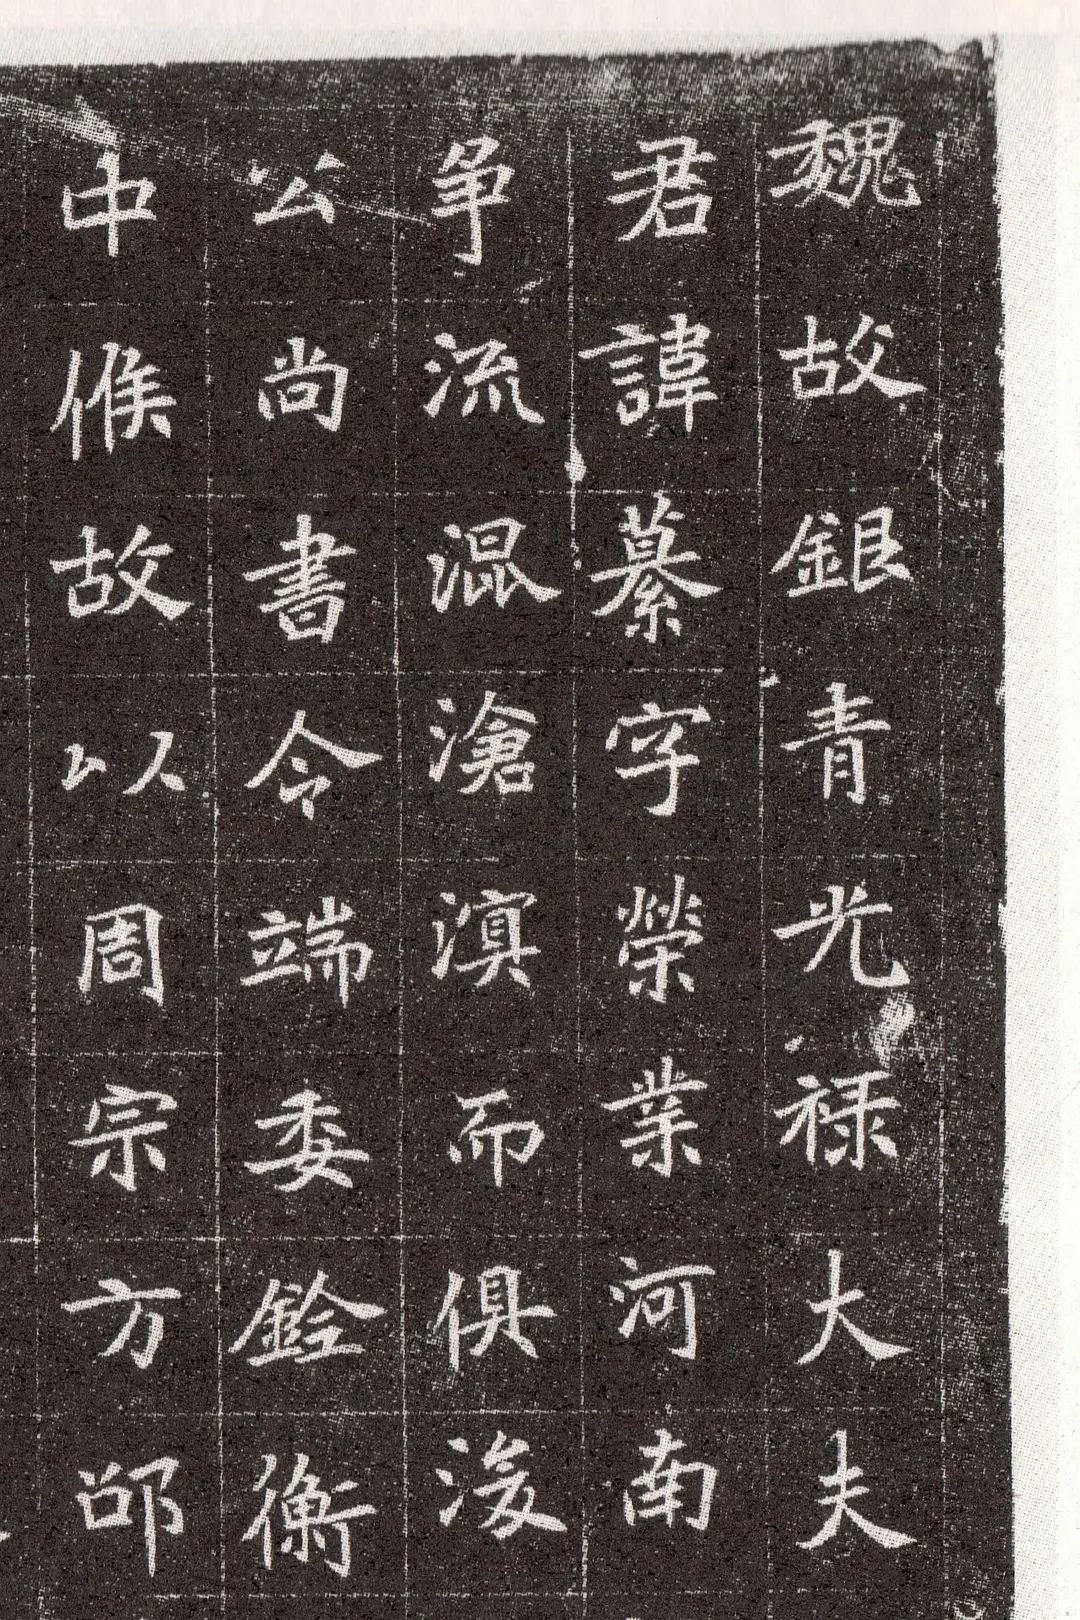 魏故銀青光禄大夫
君諱纂字榮業河南
争流混滄溟而俱浚
公尚書令端委銓衡
中候故以周宗方邵